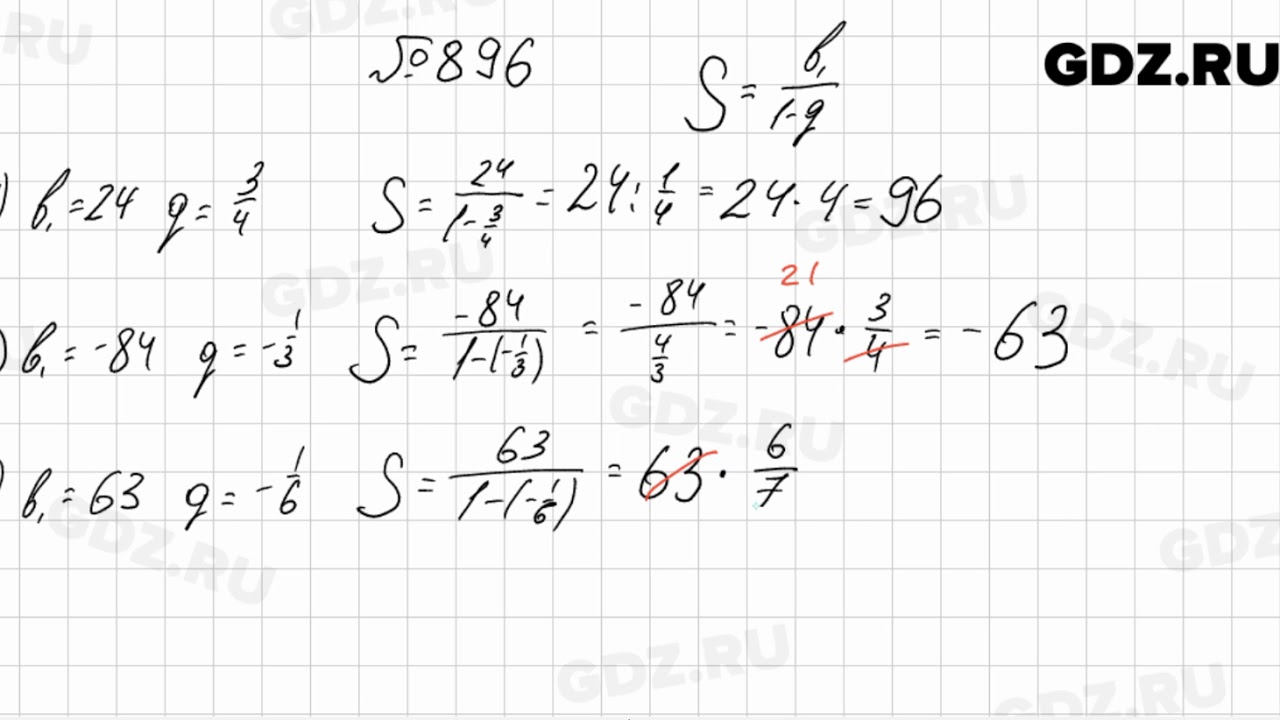 №896
S = b₁/(1-q)
GDZ.RU
) b₁ = 24 q = 3/4 S = 24/(1-3/4) = 24 : 1/4 = 24 · 4 = 96
21
) b₁ = -84 q = -1/3 S = -84/(1-(-1/3)) = -84/(4/3) = -84 · 3/4 = -63
) b₁ = 63 q = -1/6 S = 63/(1-(-1/6)) = 63 · 6/7